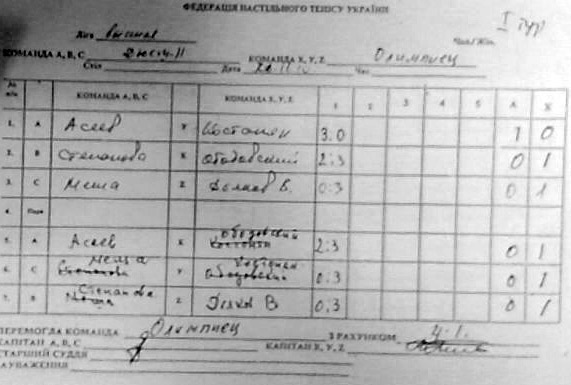 ФЕДЕРАЦІЯ НАСТІЛЬНОГО ТЕНІСУ УКРАЇНИ
I тур
Ліга высшая Чол/Жін
КОМАНДА А, В, С КОМАНДА X, Y, Z Олимпиец
Стіл Дата Час
№ п/п КОМАНДА А, В, С КОМАНДА X, Y, Z 1 2 3 4 5 А X
1. А Асеев Y Костанен 3:0 1 0
2. В Степанова X Ободовский 2:3 0 1
3. С Меша Z В. 0:3 0 1
4. Пара
5. А Асеев X Ободовский 2:3 0 1
6. С Меша Y 0:3 0 1
7. В Степанова Z В 0:3 0 1
ПЕРЕМОГЛА КОМАНДА Олимпиец З РАХУНКОМ 4-1.
КАПІТАН А, В, С КАПІТАН X, Y, Z
СТАРШИЙ СУДДЯ
ЗАУВАЖЕННЯ